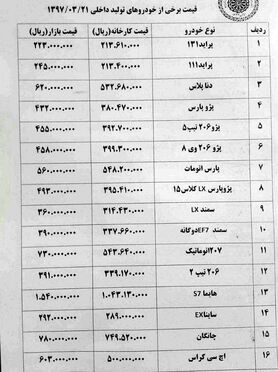 قیمت برخی از خودروهای تولید داخلی ۱۳۹۷/۰۳/۲۱
ردیف نوع خودرو قیمت کارخانه(ریال) قیمت بازار(ریال)
۱ پراید۱۳۱ ۲۱۳.۶۱۰.۰۰۰ ۲۲۳.۰۰۰.۰۰۰
۲ پراید۱۱۱ ۲۱۳.۴۰۰.۰۰۰ ۲۴۵.۰۰۰.۰۰۰
۳ دنا پلاس ۵۳۲.۶۸۰.۰۰۰ ۶۲۰.۰۰۰.۰۰۰
۴ پژو پارس ۳۸۰.۴۷۰.۰۰۰ ۴۳۲.۰۰۰.۰۰۰
۵ پژو ۲۰۶ تیپ۵ ۳۹۲.۷۰۰.۰۰۰ ۴۵۵.۰۰۰.۰۰۰
۶ پژو ۲۰۶ وی ۸ ۳۹۹.۳۰۰.۰۰۰ ۴۵۸.۰۰۰.۰۰۰
۷ پارس اتومات ۵۴۸.۲۰۰.۰۰۰ ۵۶۰.۰۰۰.۰۰۰
۸ پژوپارس LX کلاس۱۵ ۳۹۵.۴۱۰.۰۰۰ ۴۹۳.۰۰۰.۰۰۰
۹ سمند LX ۳۱۴.۴۳۰.۰۰۰ ۳۶۰.۰۰۰.۰۰۰
۱۰ سمند EF7دوگانه ۳۳۷.۶۶۰.۰۰۰ ۳۹۰.۰۰۰.۰۰۰
۱۱ ۲۰۷اتوماتیک ۵۴۳.۶۴۰.۰۰۰ ۷۳۰.۰۰۰.۰۰۰
۱۲ ۲۰۶ تیپ ۲ ۳۳۹.۱۷۰.۰۰۰ ۳۹۱.۰۰۰.۰۰۰
۱۳ هایما S7 ۱.۰۴۳.۱۳۰.۰۰۰ ۱.۵۴۰.۰۰۰.۰۰۰
۱۴ سایناEX ۲۸۹.۰۰۰.۰۰۰ ۲۹۲.۰۰۰.۰۰۰
۱۵ چانگان ۷۴۹.۵۲۰.۰۰۰ ۷۸۰.۰۰۰.۰۰۰
۱۶ اچ سی کراس ۵۰۰.۰۰۰.۰۰۰ ۶۰۳.۰۰۰.۰۰۰